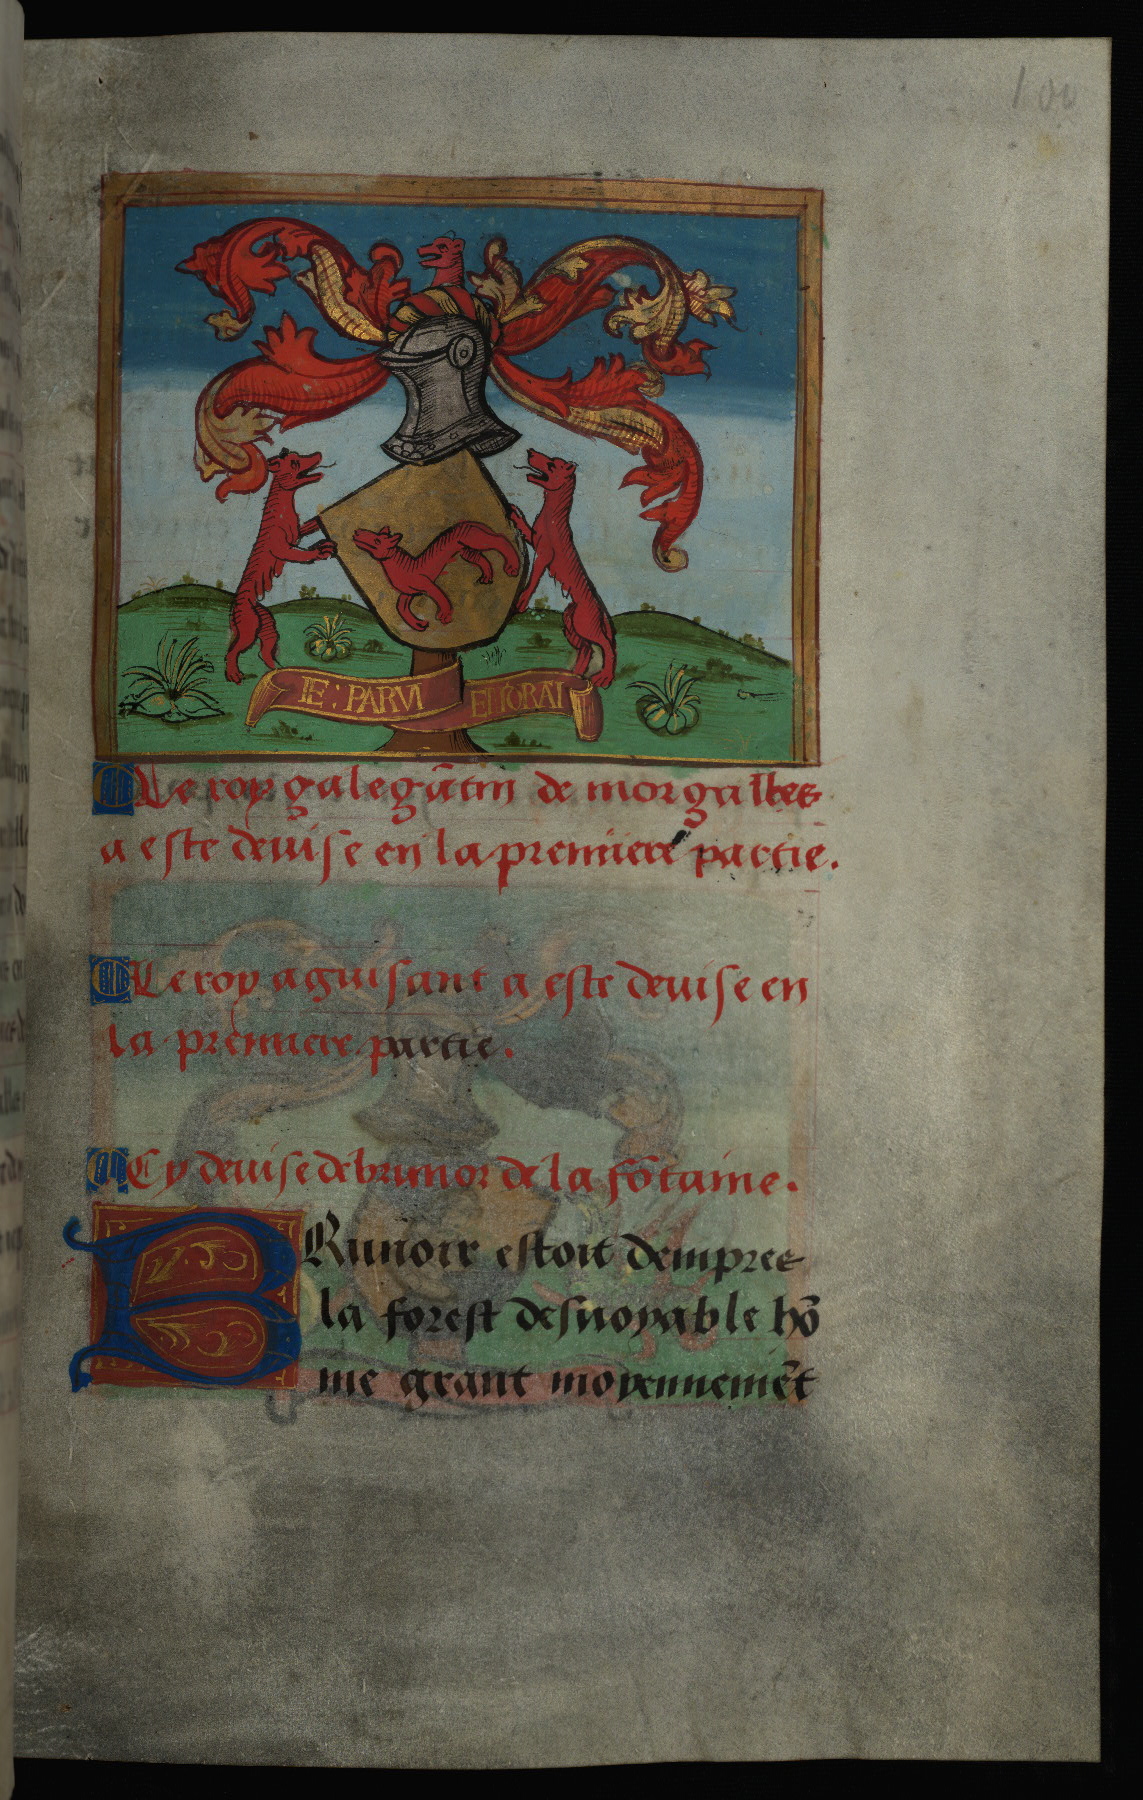 100
IE : PARVI ENORAT
Le roy galegãtin de morgalles
a este deuise en la premiere partie.
Le roy aguisant a este deuise en
la premiere partie.
Cy deuise de brunor de la fõtaine.
BRunoir estoit dempres
la forest desuoyable hõ
me grant moyennemẽt